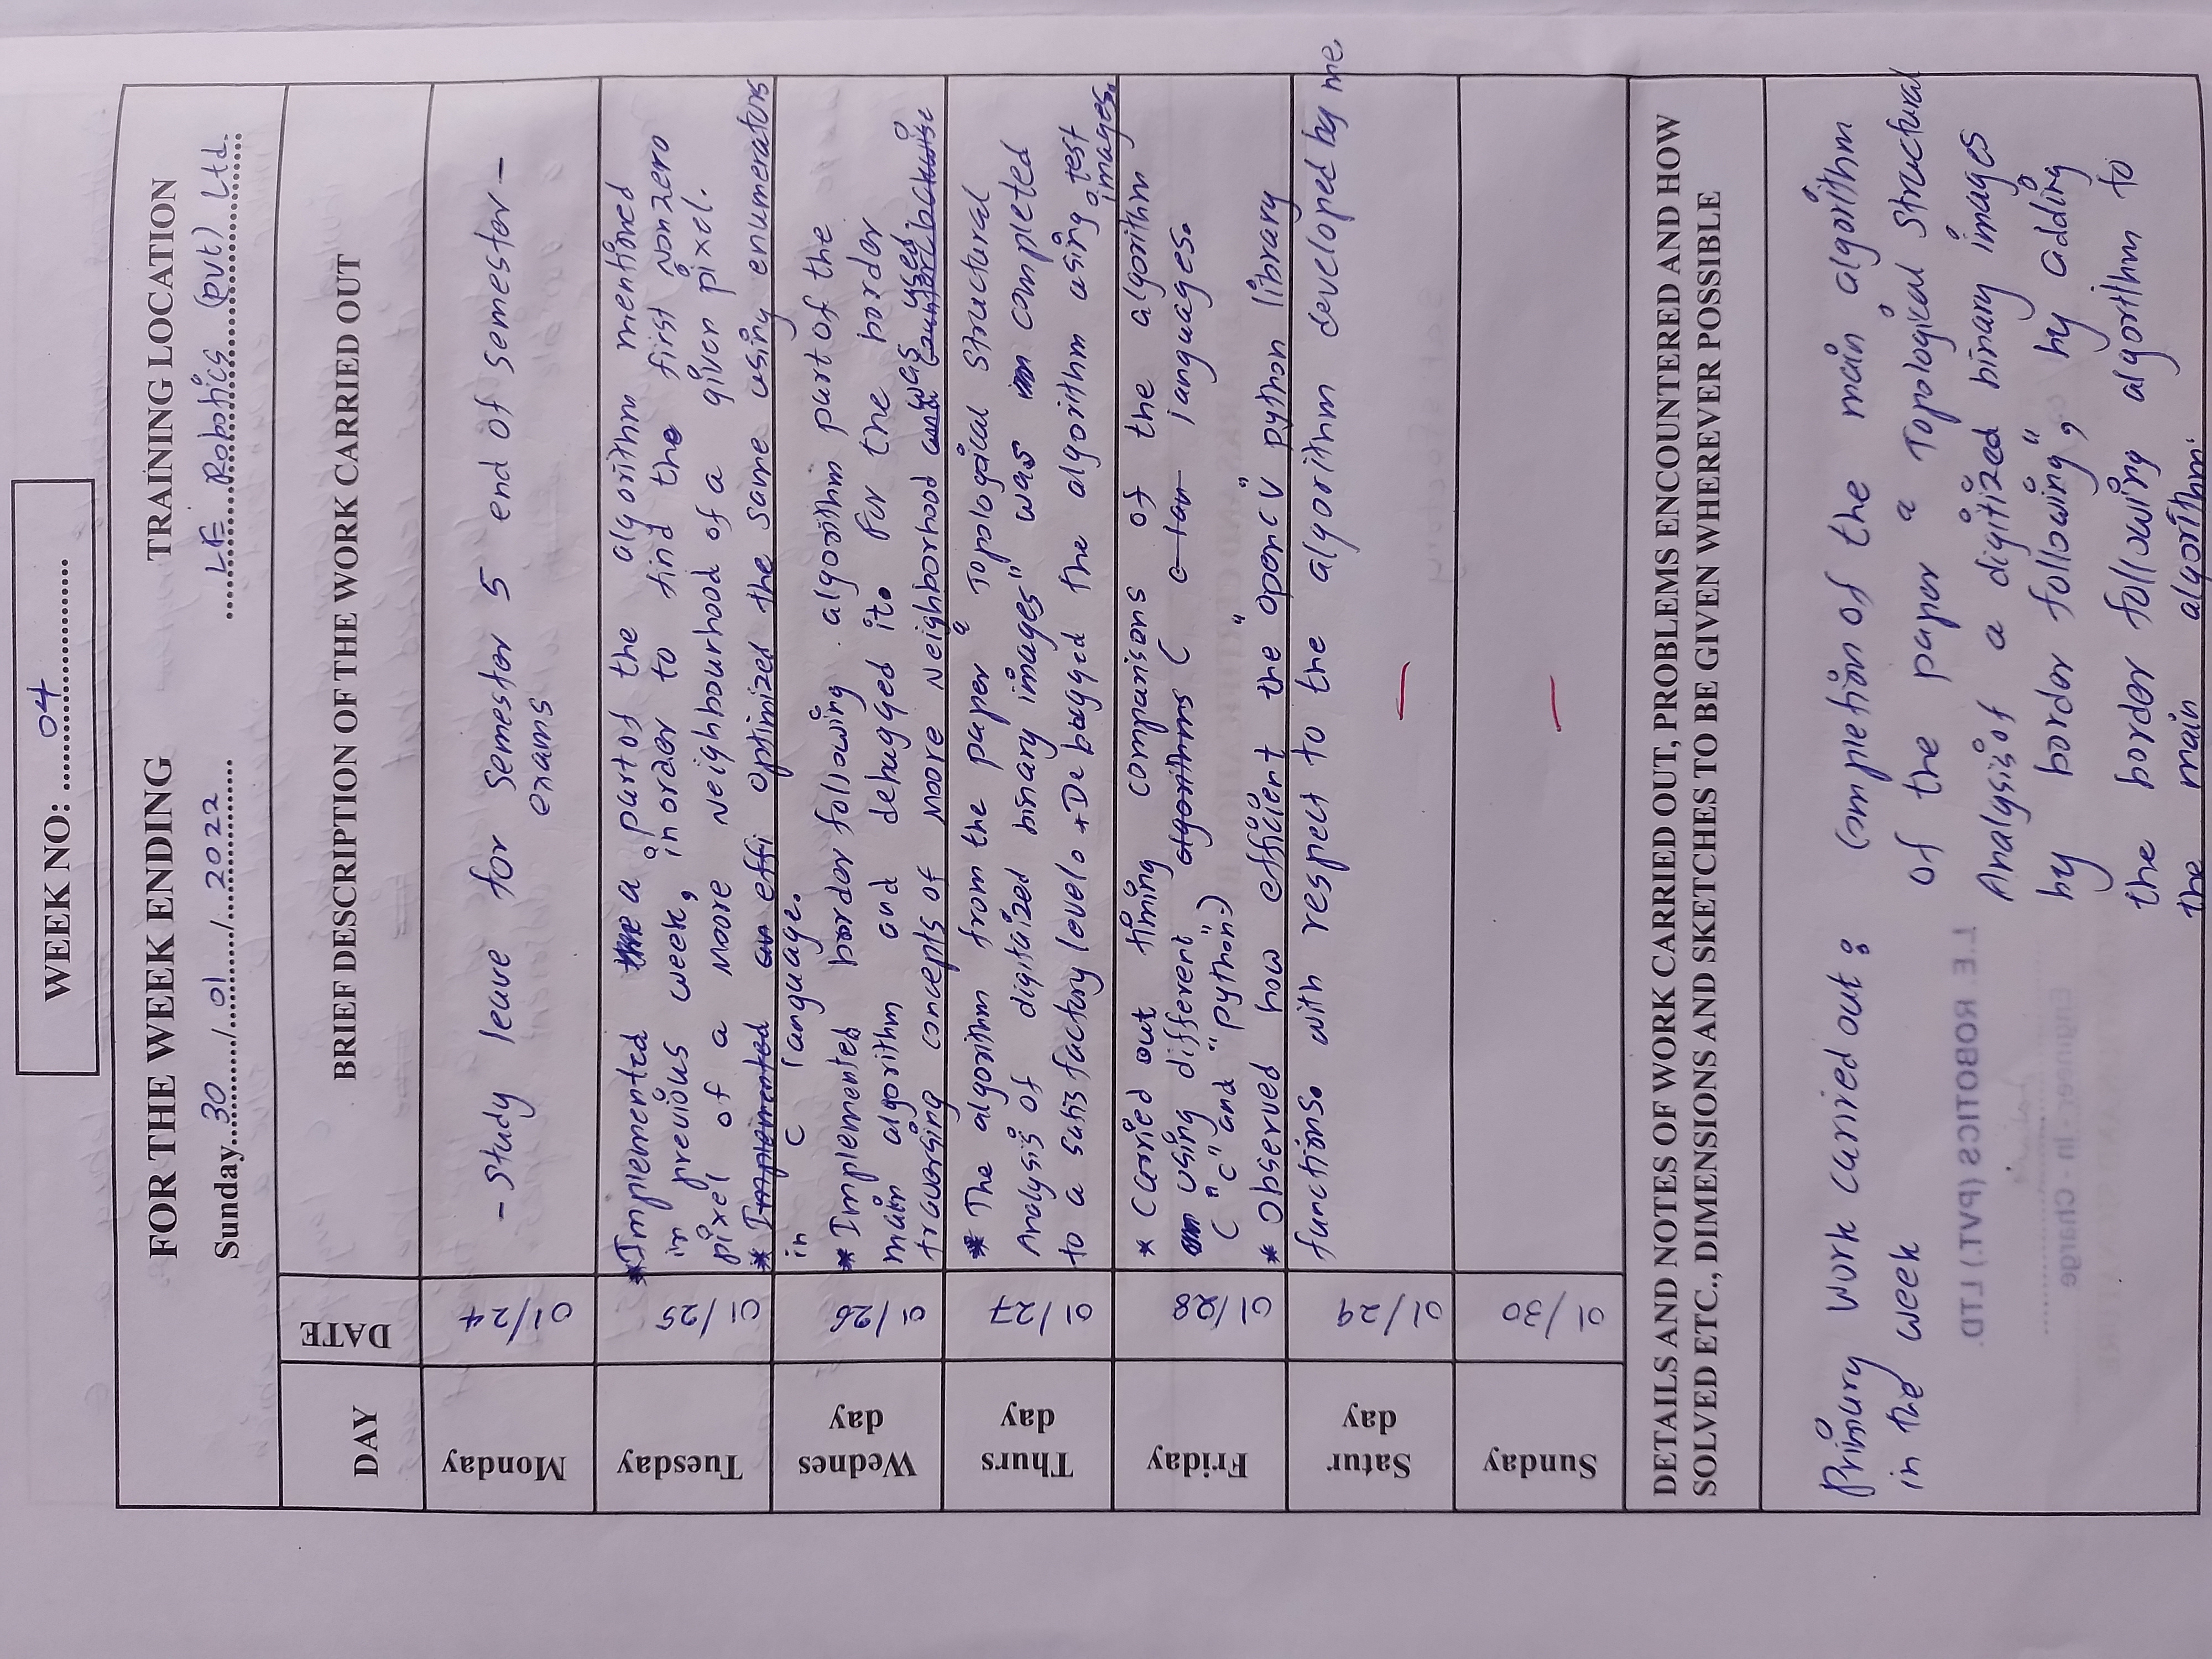 WEEK NO: 04
FOR THE WEEK ENDING TRAINING LOCATION
Sunday 30 / 01 / 2022 LE Robotics (pvt) Ltd.
DAY DATE BRIEF DESCRIPTION OF THE WORK CARRIED OUT
Monday 01/24
- Study leave for semester 5 end of semester -
exams
Tuesday 01/25
* Implemented a part of the algorithm mentioned
in previous week, inorder to find the first Nonzero
pixel of a Moore Neighbourhood of a given pixel.
* Implemented an effi Optimized the same using enumerators
Wednes day 01/26
in C language.
* Implemented border following algorithm part of the
main algorithm and debugged it. For the border
was used.
traversing concepts of Moore Neighborhood and Counterclockwise
Thurs day 01/27
* The algorithm from the paper "Topological Structural
Analysis of digitized binary images" was completed
to a satisfactory level. * Debugged the algorithm using test
images.
Friday 01/28
* Carried out timing comparisons of the algorithm
using different algorithms ( c lan languages.
( "C" and "python")
* Observed how efficient the "opencv" python library
Satur day 01/29
functions. with respect to the algorithm developed by me.
—
Sunday 01/30
—
DETAILS AND NOTES OF WORK CARRIED OUT, PROBLEMS ENCOUNTERED AND HOW
SOLVED ETC., DIMENSIONS AND SKETCHES TO BE GIVEN WHEREVER POSSIBLE
Primary work carried out : Completion of the main algorithm
in the week of the paper "Topological Structural
Analysis of a digitized binary images
by border following", by adding
the border following algorithm to
the main algorithm.